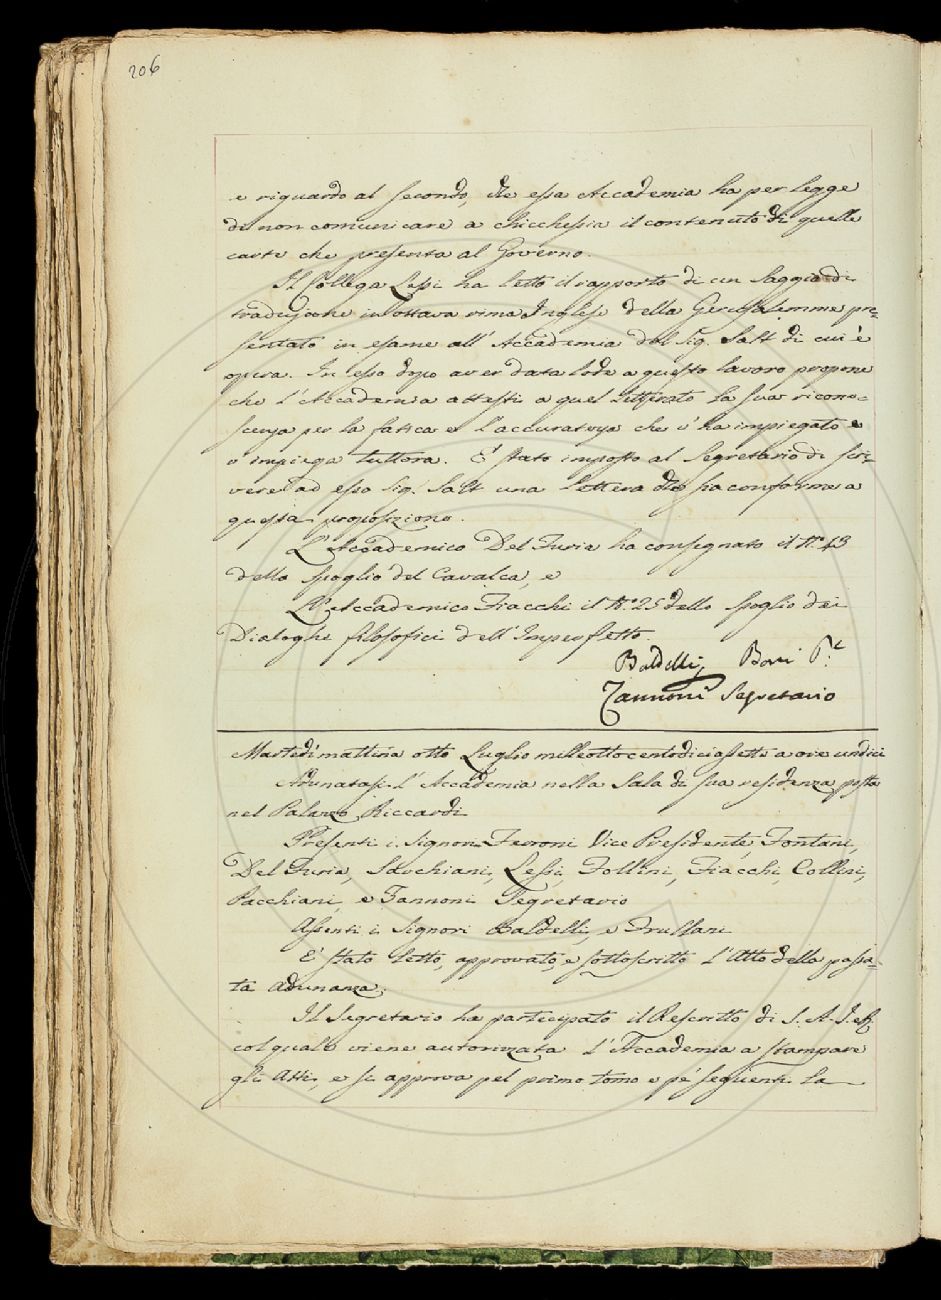 206
e riguardo al secondo, che essa Accademia ha per legge
di non comunicare a chicchessia il contenuto di quelle
carte che presenta al Governo.
Il Collega Lessi ha letto il rapporto di un Saggio di
traduzione in ottava rima Inglese della Gerusalemme pre=
sentato in esame all' Accademia dal Sig. Salt di cui è
opera. In esso dopo aver data lode a questo lavoro propone
che l'Accademia attesti a quel Letterato la sua ricono=
scenza per la fatica e l'accuratezza che v'ha impiegato e
v'impiega tuttora. È stato imposto al Segretario di scri=
vere ad esso Sig. Salt una lettera che sia conforme a
questa proposizione.
L'Accademico Del Furia ha consegnato il N.° 43
dello spoglio del Cavalca, e
L'Accademico Fiacchi il N.° 25 dello spoglio dei
Dialoghi filosofici dell'Imperfetto.
Baldelli Boni P.te
Zannoni Segretario
Martedì mattina otto Luglio milleottocentodiciassette a ore undici
Adunatasi l'Accademia nella Sala di sua residenza posta
nel Palazzo Riccardi
Presenti i Signori Ferroni Vice Presidente, Fontani,
Del Furia, Sarchiani, Lessi, Follini, Fiacchi, Collini,
Pacchiani, e Zannoni Segretario
Assenti i Signori Baldelli, e Frullani
È stato letto, approvato, e sottoscritto l'Atto della passa=
ta adunanza.
Il Segretario ha partecipato il Rescritto di S. A. I. e R.
col quale viene autorizzata l'Accademia a stampare
gli Atti, e si approva pel primo tomo e pe' seguenti la